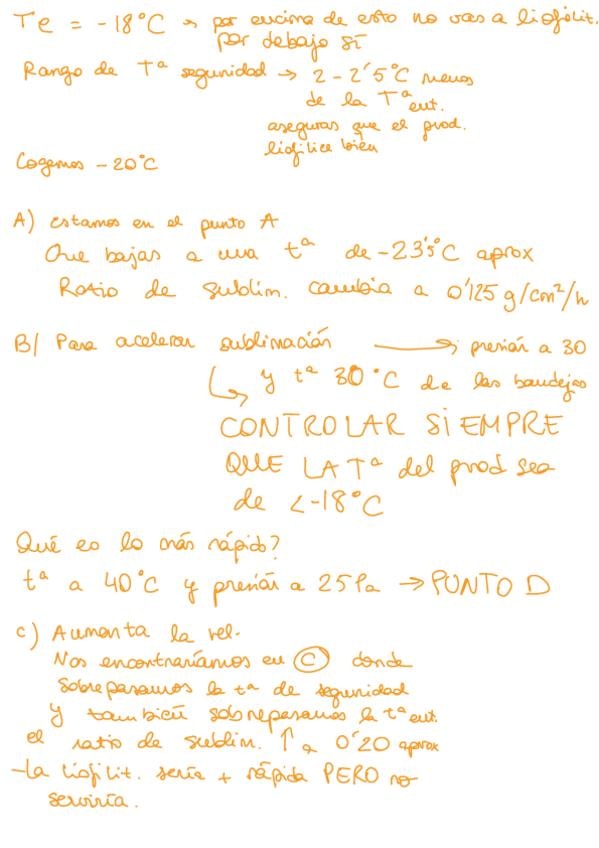 Te = -18°C → por encima de esto no vas a liofilit.
por debajo sí
Rango de Tª seguridad → 2 - 2'5°C menos
de la Tª eut.
aseguras que el prod.
liofilice bien
Cogemos -20°C
A) estamos en el punto A
Que bajas a una tª de -23'5°C aprox
Ratio de sublim. cambia a 0'125 g/cm²/h
B/ Para acelerar sublimación → presión a 30
↳ y tª 30°C de las bandejas
CONTROLAR SIEMPRE
QUE LA Tª del prod sea
de <-18°C
Qué es lo más rápido?
tª a 40°C y presión a 25 Pa → PUNTO D
C) Aumenta la vel.
Nos encontraríamos en C donde
sobrepasamos la tª de seguridad
y también sobrepasamos la tª eut.
el ratio de sublim. ↑ a 0'20 aprox
- La liofilit. sería + rápida PERO no
serviría.